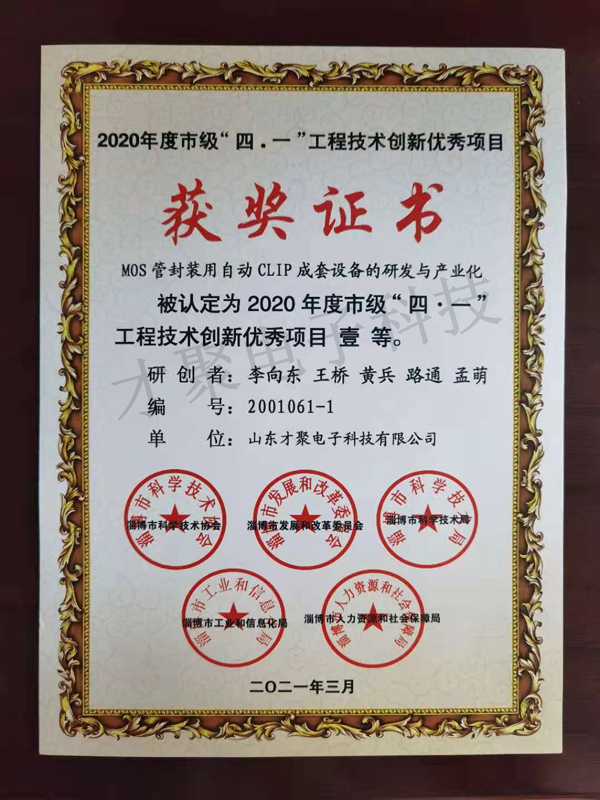 2020年度市级“四·一”工程技术创新优秀项目
获奖证书
MOS管封装用自动CLIP成套设备的研发与产业化
被认定为2020年度市级“四·一”
工程技术创新优秀项目 壹 等。
研创者：李向东 王桥 黄兵 路通 孟萌
编号：2001061-1
单位：山东才聚电子科技有限公司
才聚电子科技
淄博市科学技术协会
淄博市科学技术协会
淄博市发展和改革委员会
淄博市发展和改革委员会
淄博市科学技术局
淄博市科学技术局
淄博市工业和信息化局
淄博市工业和信息化局
淄博市人力资源和社会保障局
淄博市人力资源和社会保障局
二〇二一年三月